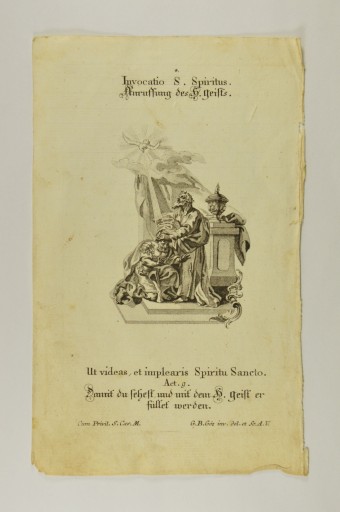 2.
Invocatio S. Spiritus.
Anruffung des H. Geists.
Ut videas, et implearis Spiritu Sancto.
Act. 9.
Damit du sehest und mit dem H. Geist er
füllet werden.
Cum Privil. S. Cæs. M.
G. B. Göz inv. del. et Sc. A. V.